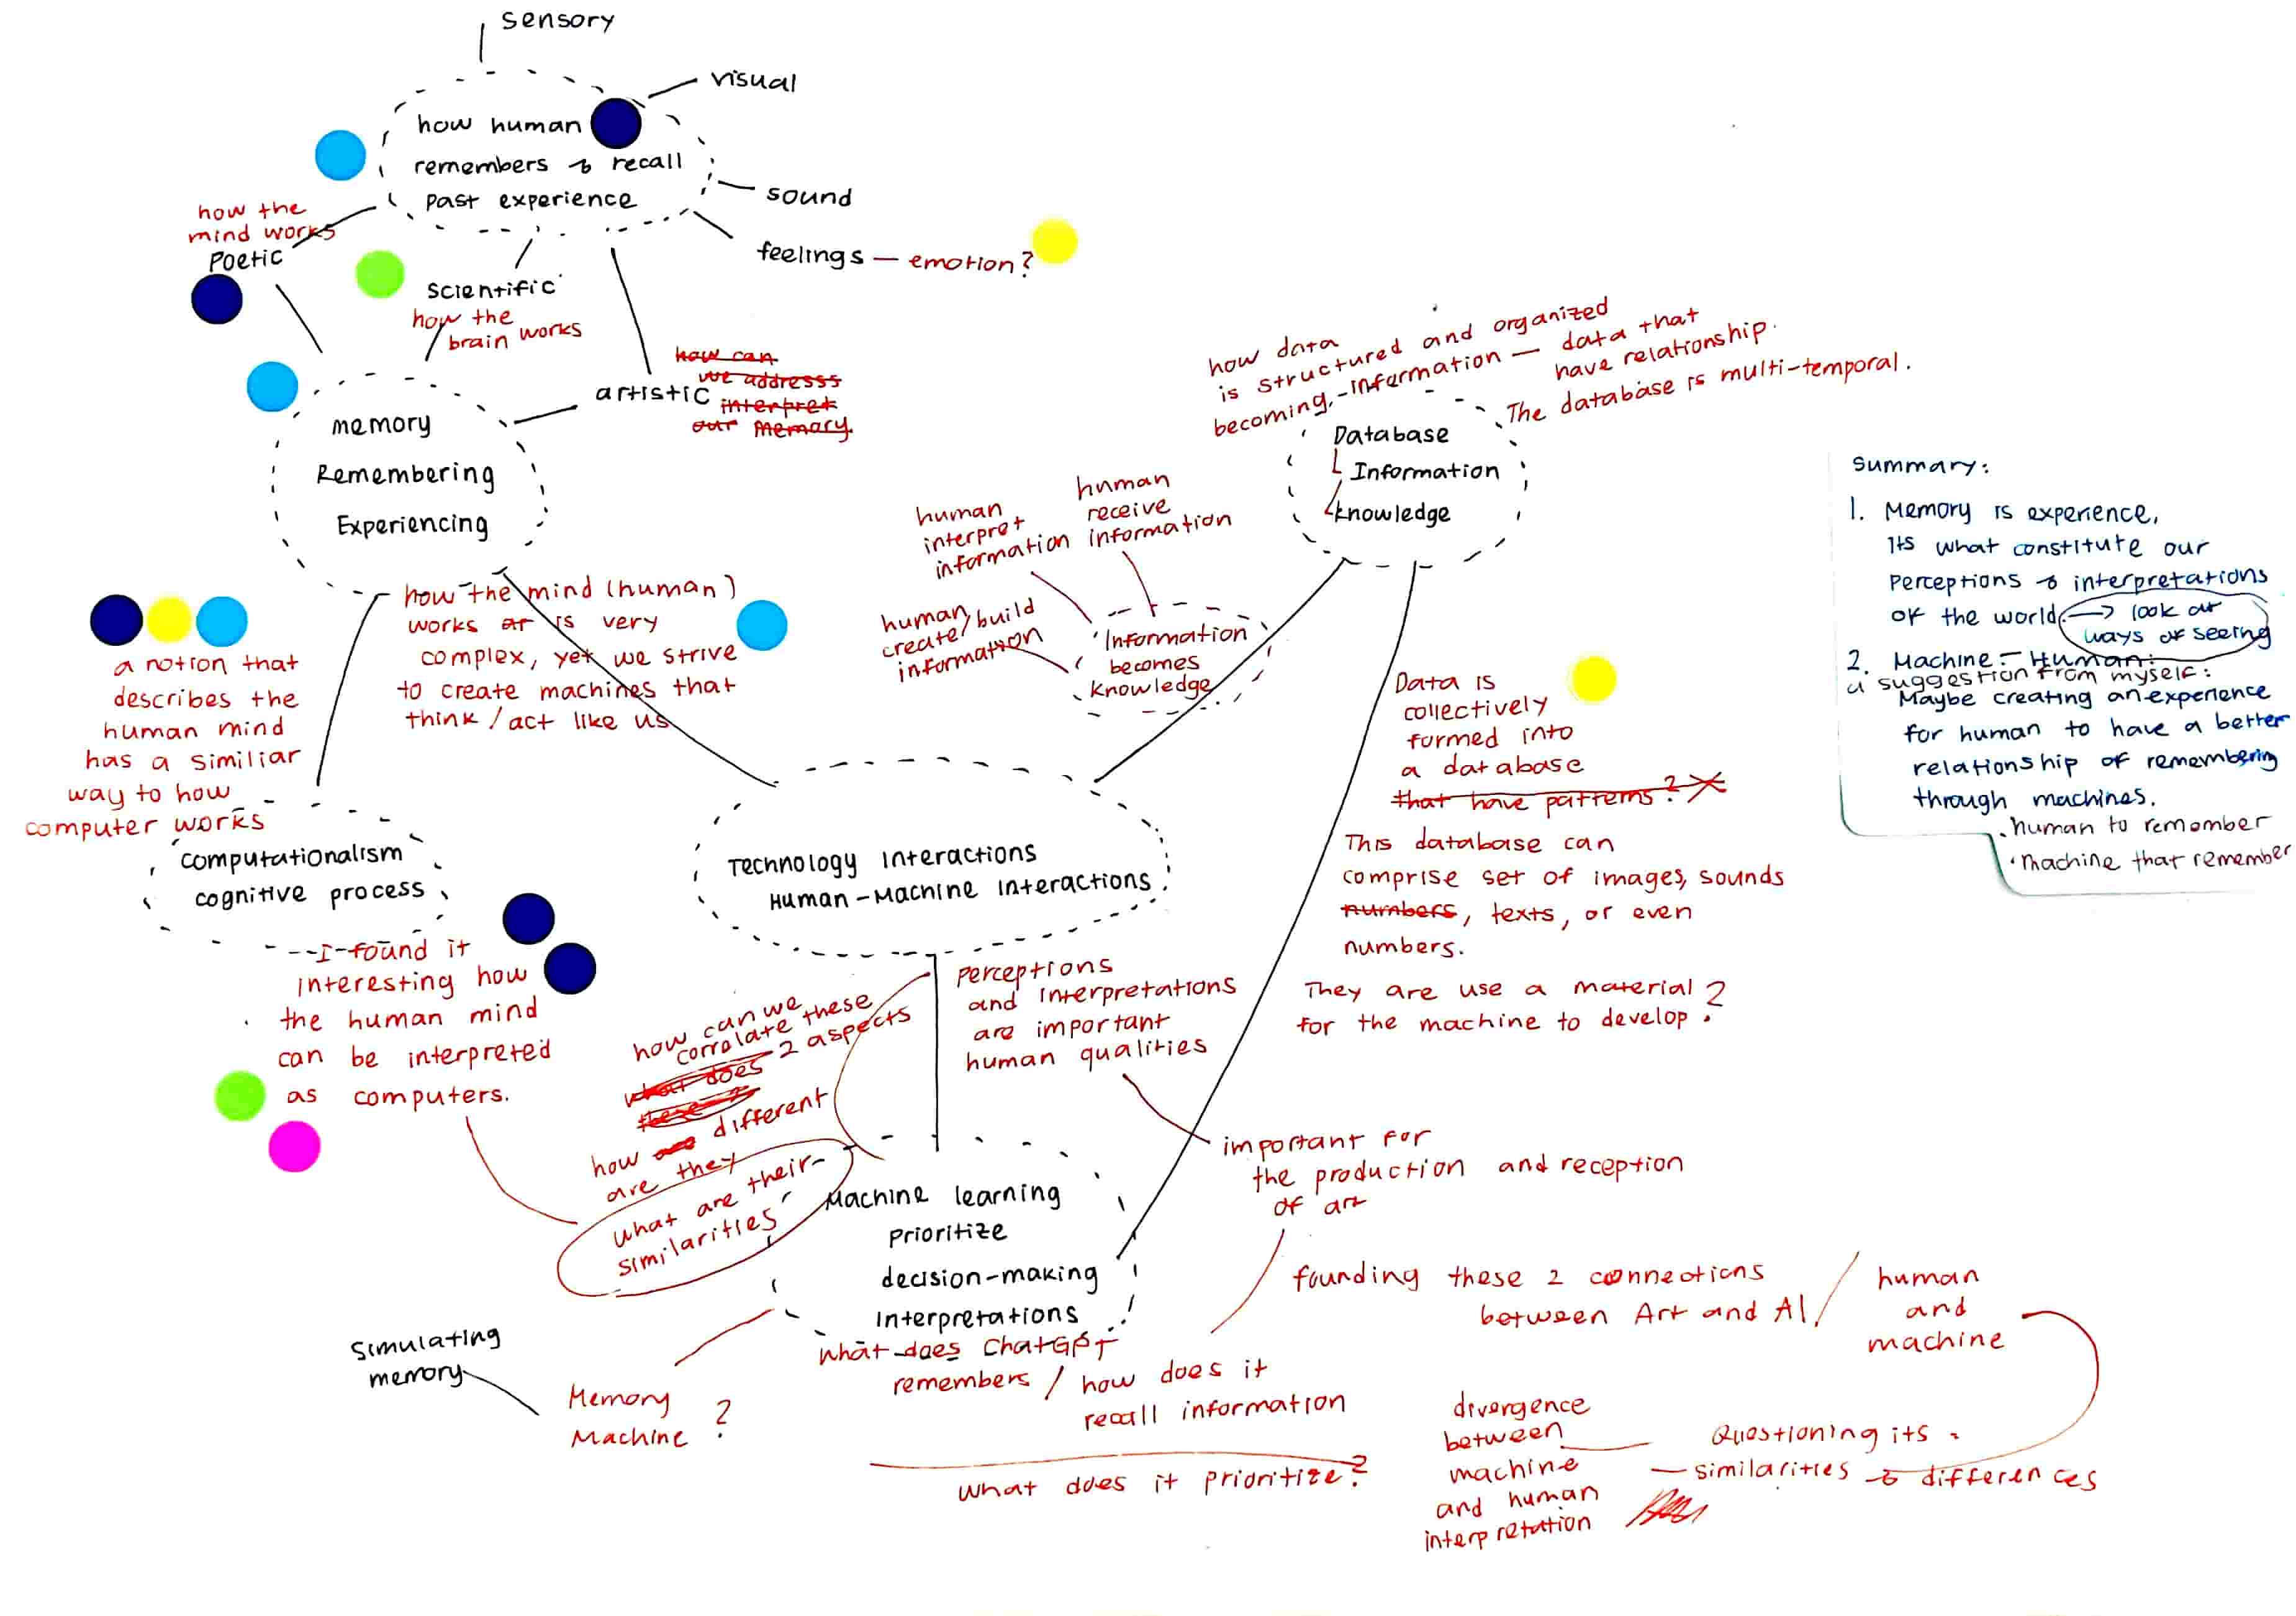 sensory
visual
how human
remembers & recall
past experience
sound
feelings — emotion?
how the
mind works
Poetic
scientific
how the
brain works
artistic
how can
we addresss
interpret
our memory.
memory
Remembering
Experiencing
how the mind (human)
works ar is very
complex, yet we strive
to create machines that
think / act like us
a notion that
describes the
human mind
has a similiar
way to how
computer works
computationalism
cognitive process
I found it
interesting how
the human mind
can be interpreted
as computers.
how data
is structured and organized
becoming, - information — data that
have relationship.
The database is multi-temporal.
Database
Information
knowledge
human
interpret
information
human
receive
information
human
create/build
information
Information
becomes
knowledge
Technology Interactions
Human-Machine Interactions
Data is
collectively
formed into
a database
that have patterns?
This database can
comprise set of images, sounds
numbers, texts, or even
numbers.
They are use a material
for the machine to develop?
perceptions
and interpretations
are important
human qualities
important for
the production and reception
of art
how can we
correlate these
2 aspects
what does
these 2
how are
different
are they
what are their
similarities
Machine learning
prioritize
decision-making
interpretations
what does ChatGPT
remembers / how does it
recall information
what does it prioritize?
simulating
memory
Memory
Machine ?
founding these 2 connections
between Art and AI /
human
and
machine
divergence
between
machine
and human
interpretation
Questioning its
similarities & differences
summary:
1. Memory is experience,
Its what constitute our
perceptions & interpretations
of the world. → look at
ways of seeing
2. Machine - Human:
a suggestion from myself:
Maybe creating an experience
for human to have a better
relationship of remembering
through machines.
. human to remember
. machine that remember